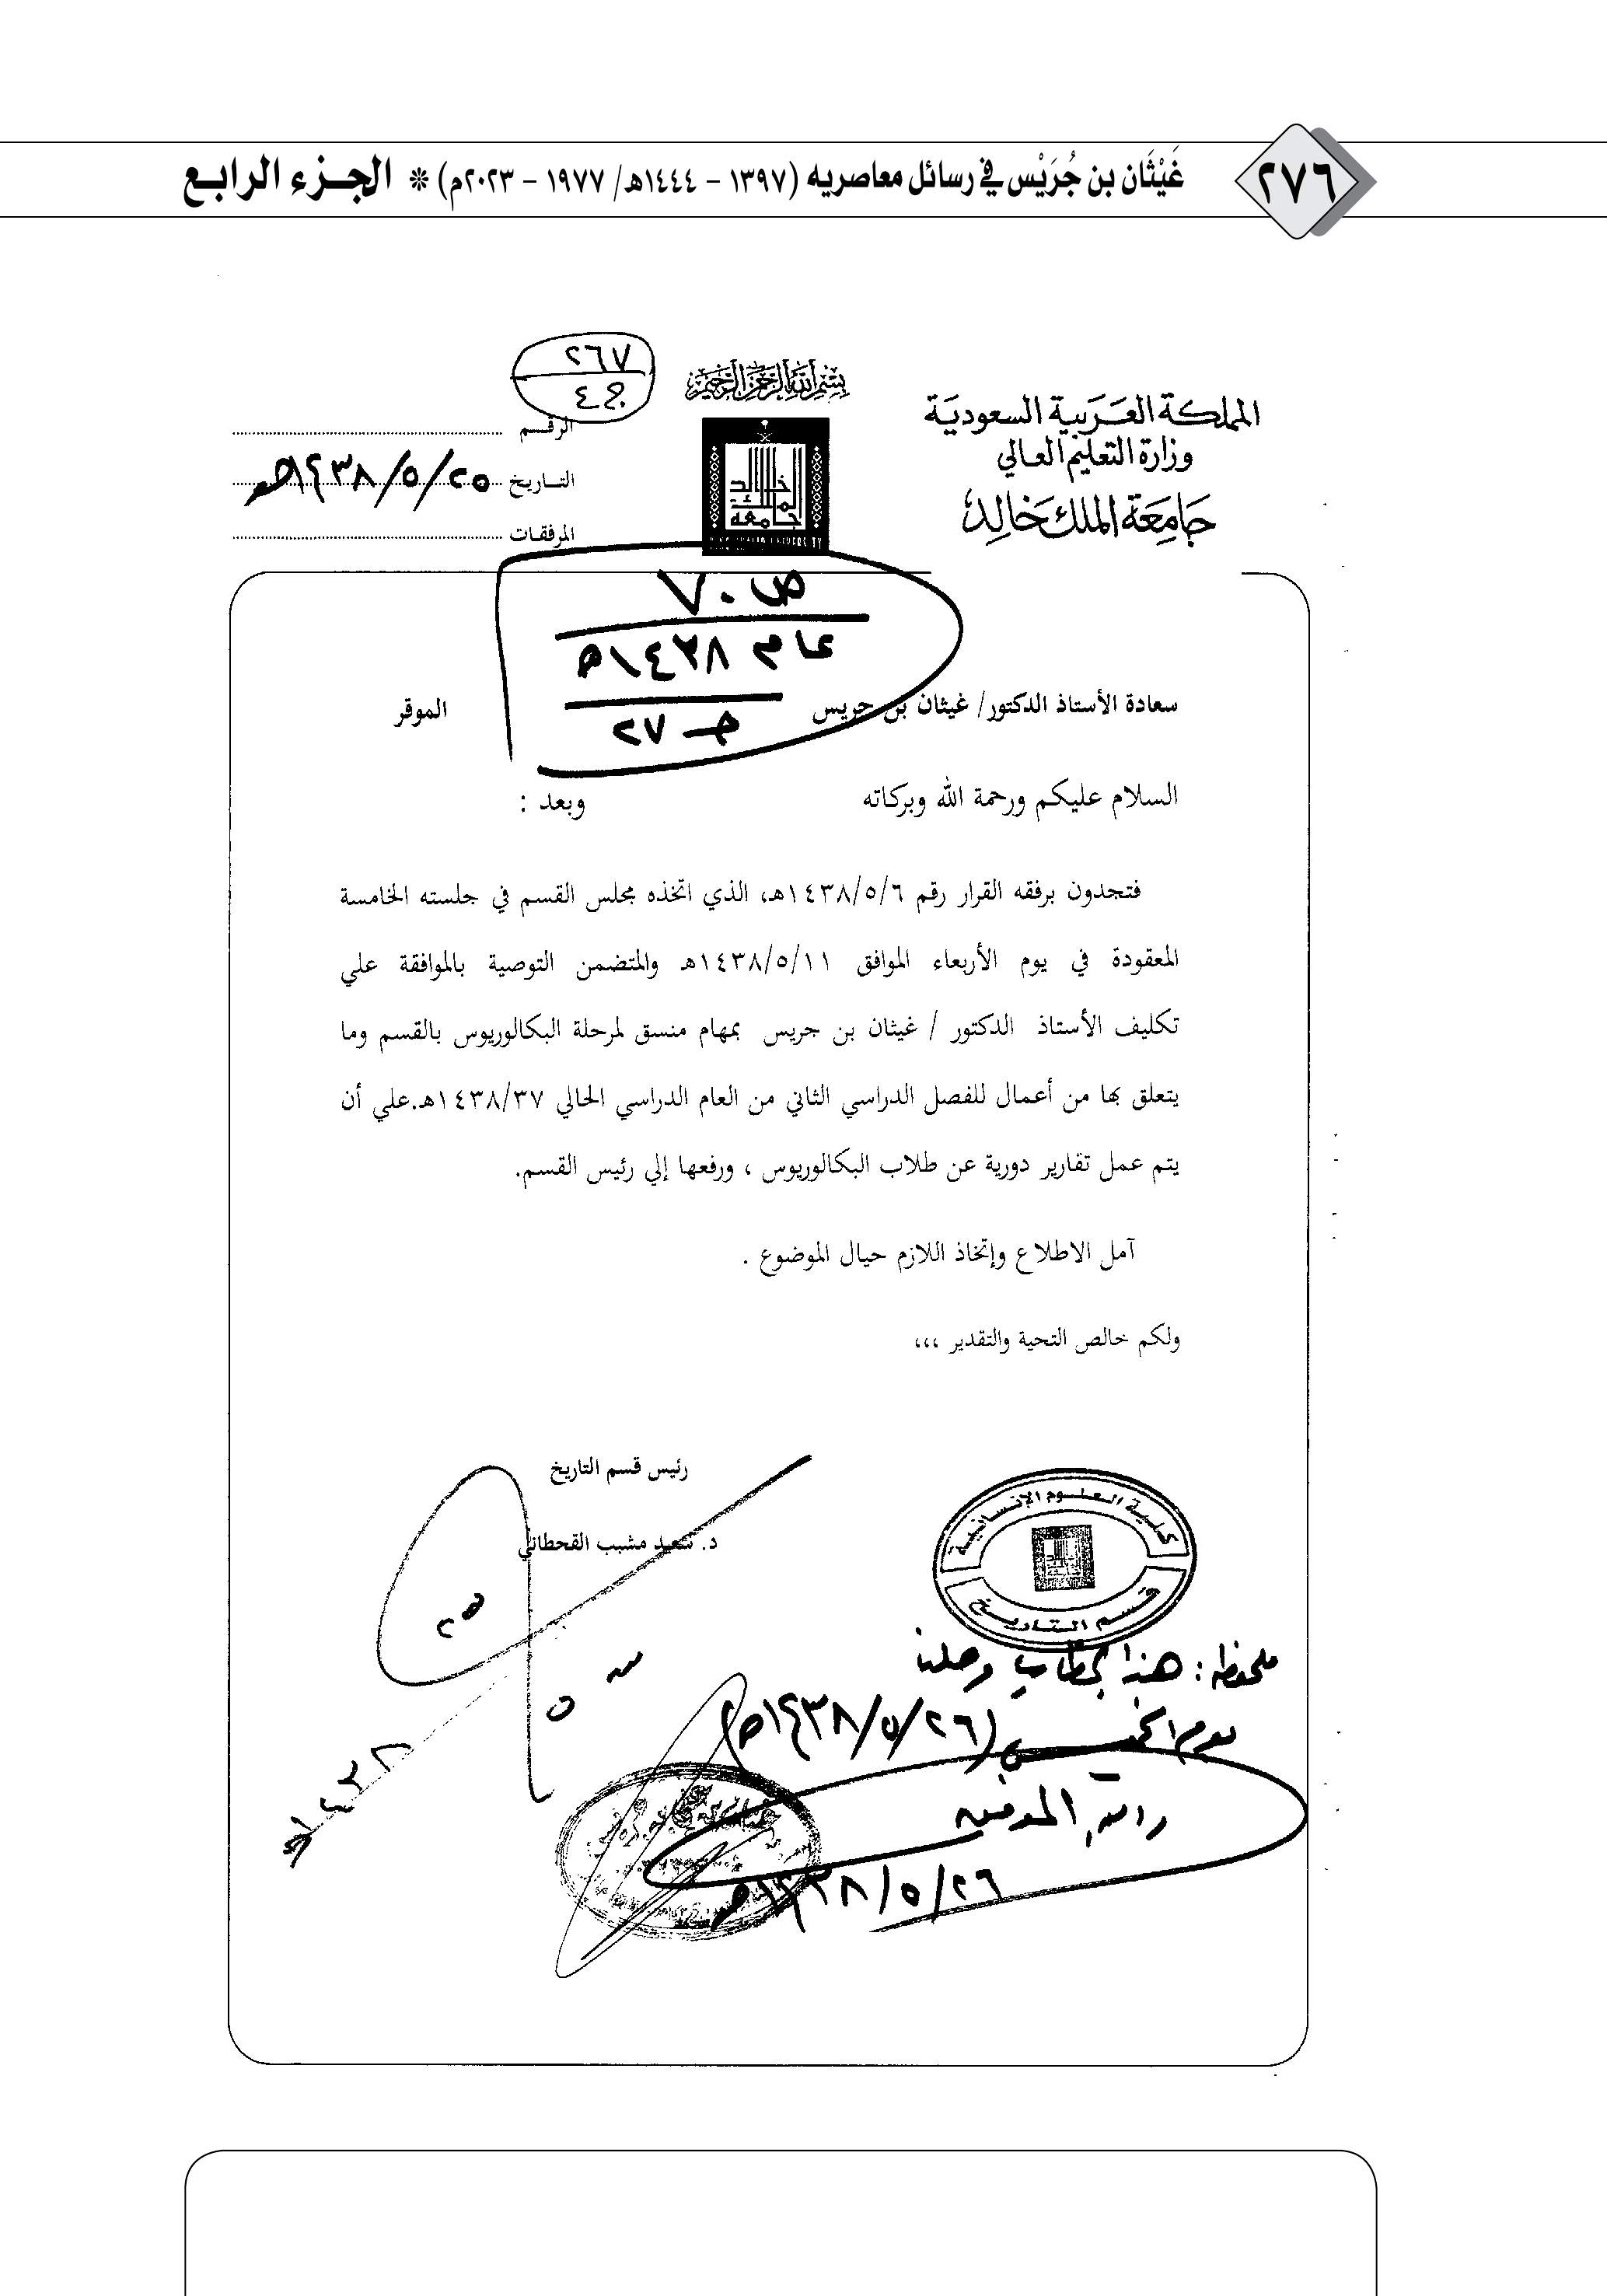 ٢٧٦
غَيْثَان بن جُرَيْس في رسائل معاصريه (١٣٩٧ – ١٤٤٤هـ/ ١٩٧٧ – ٢٠٢٣م) ❊ الجـزء الرابـع
بسم الله الرحمن الرحيم
المملكة العربية السعودية
وزارة التعليم العالي
جامعة الملك خالد
جامعة الملك خالد
KING KHALID UNIVERSITY
٢٦٧
ج ٤
الرقـــم
التــاريخ ٢٥/٥/١٤٣٨هـ
المرفقـات
ص ٧٠
عام ١٤٣٨هـ
جـ ٢٧
سعادة الأستاذ الدكتور/ غيثان بن جريس الموقر
السلام عليكم ورحمة الله وبركاته وبعد :
فتجدون برفقه القرار رقم ١٤٣٨/٥/٦هـ، الذي اتخذه مجلس القسم في جلسته الخامسة
المعقودة في يوم الأربعاء الموافق ١٤٣٨/٥/١١هـ والمتضمن التوصية بالموافقة علي
تكليف الأستاذ الدكتور / غيثان بن جريس بمهام منسق لمرحلة البكالوريوس بالقسم وما
يتعلق بها من أعمال للفصل الدراسي الثاني من العام الدراسي الحالي ١٤٣٨/٣٧هـ.علي أن
يتم عمل تقارير دورية عن طلاب البكالوريوس ، ورفعها إلي رئيس القسم.
آمل الاطلاع وإتخاذ اللازم حيال الموضوع .
ولكم خالص التحية والتقدير ،،،
رئيس قسم التاريخ
د. سعيد مشبب القحطاني
كلية العلوم الإنسانية
قسم التاريخ
ملحوظة : هذا الخطاب وصلنا
يوم الخميس (٢٦/٥/١٤٣٨هـ)
والله الموفق
٢٦/٥/١٤٣٨هـ